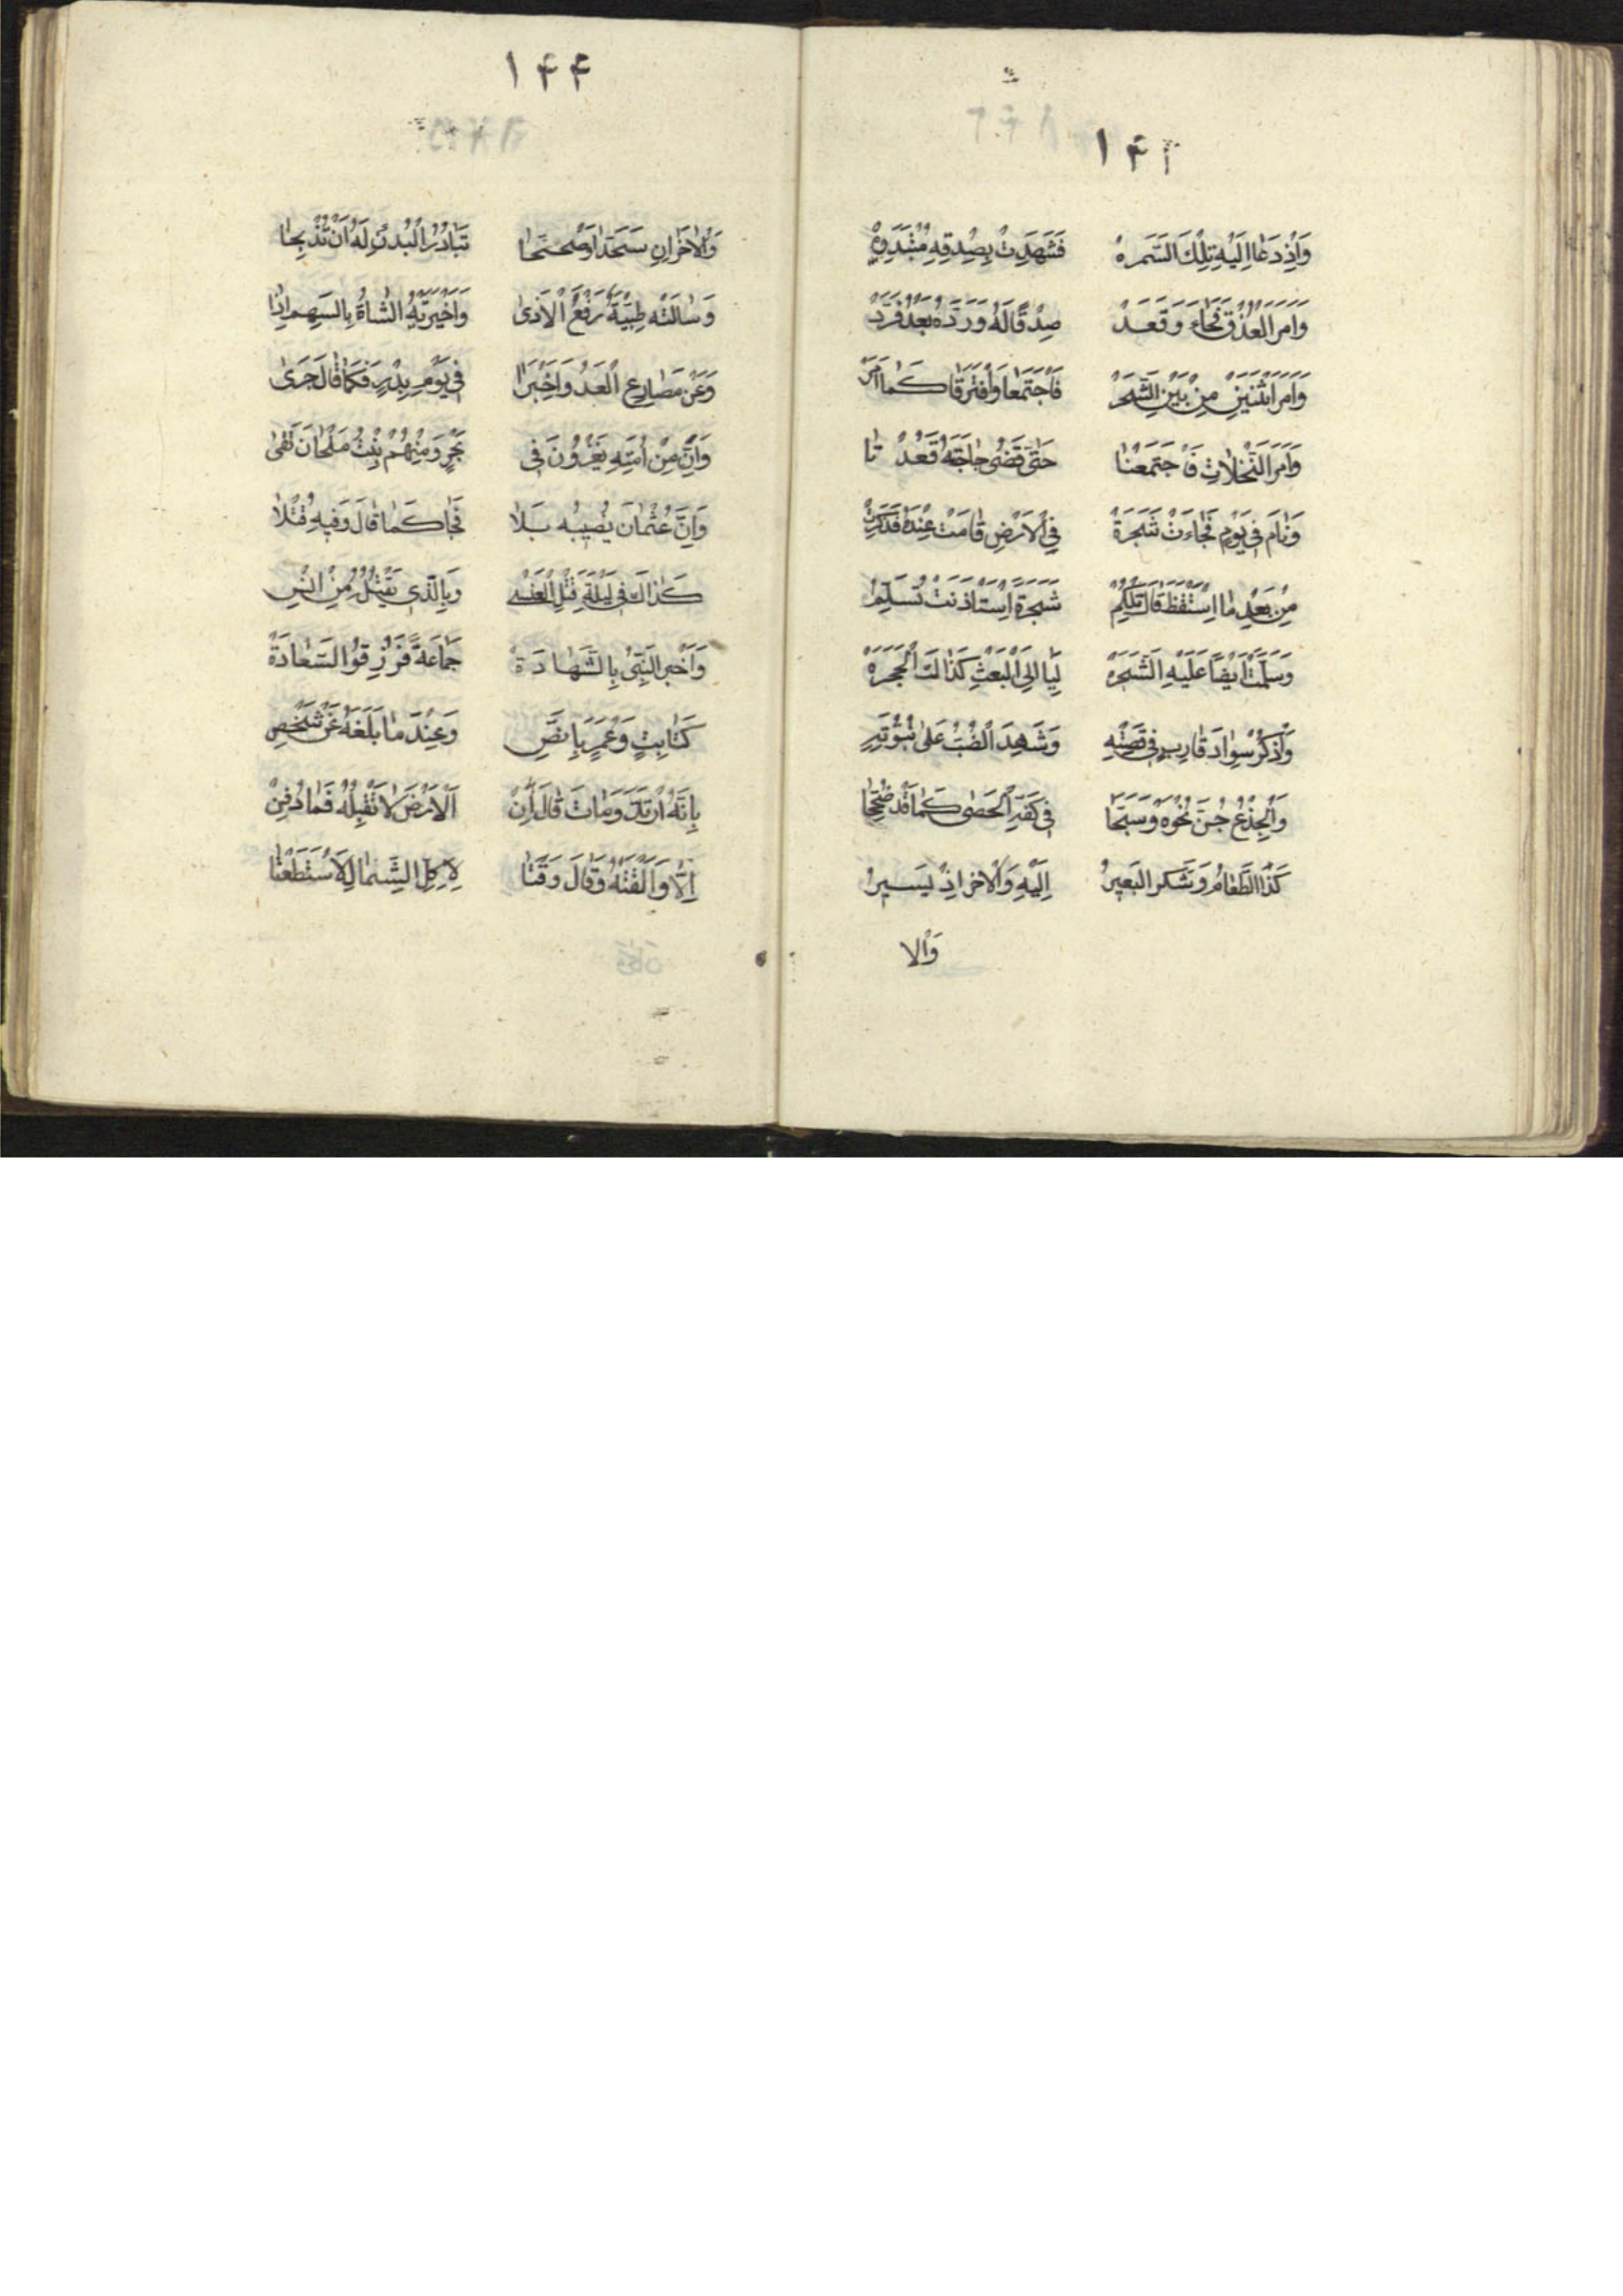 ١۴٢
وَاِذْ دَعَا اِلَيْهِ تِلْكَ السَّمَرهْ فَشَهِدَتْ بِصِدْقِهِ
وَاَمر العذق فَجَاءَ وَقَعَدْ صِدْقًا لَهُ وَرَدَّهُ بَعْدُ فَرَدْ
وَاَمَر اثْنَيْنِ مِنْ بَيْنِ الشَّجَرْ فَاجْتَمَعَا وَافْتَرَقَا كَمَا اَمَرْ
وَاَمَر النَّخَلَاتِ فَاجتَمَعْنَا حَتّٰى قَضٰى حَاجَتَهُ قَعُدْنَا
وَنَام فِي يَوْمٍ فَجَاءَتْ شَجَرَةْ فِي الْاَرْضِ قَامَتْ عِنْدَهُ
مِنْ بَعْدِ مَا اِسْتَيْقَظَ قَالَ شَجَرَةٌ اِسْتَاذَنَتْ تُسَلِّمُ
وَسَلَّمَتْ اَيْضًا عَلَيْهِ الشَّجَرَهْ لَيَالِيَ الْبَعْثِ كَذَاكَ الْحَجَرَهْ
وَاذْكُرْ سَوَادَ قَارِبٍ فِي قِصَّتِهِ وَشَهِدَ الضَّبُّ عَلٰى نُبُوَّتِهِ
وَالْجِذْعُ حَنَّ نَحْوَهُ وَسَبَّحَا فِي كَفِّهِ الْحَصٰى كَمَا قَدْ صُحِّحَا
كَذَا الطَّعَامُ وَشَكَر الْبَعِيرُ اِلَيْهِ وَالْاٰخَر اِذْ يَسِيرُ
وَالا
١۴۴
وَالْاٰخَرَانِ سَجَدَا وَصُحِّحَا تَبَادُرُ الْبُدْنِ لَهُ اَنْ تُذْبَحَا
وَسَاَلَتْه ظَبْيَةٌ رَفْعَ الْاَذٰى وَاَخْبَرَتْهُ الشَّاةُ بِالسَّهم اِذَا
وَعَنْ مَصَارِعِ الْعَدُ وَاَخْبَرَا فِي يَوْمِ بَدْرٍ فَكَمَا قَالَ جَرٰى
وَاَنَّ مِنْ اُمَّتِهِ يَغْزُوْنَ فِي بَحْرٍ وَمِنْهُمْ بِنْتُ مَلْحَانَ تَفِي
وَاَنَّ عُثْمَانَ يُصِيبُه بَلَا فَجَا كَمَا قَالَ وَفِيهِ قُتِلَا
كَذَاكَ فِي لَيْلَةِ قَتْلِ الْعَنْسِي وَبِالَّذِي يَقْتُلُهُ مِنْ
وَاَخْبَر النَّبِيُّ بِالشَّهَادَةْ جَمَاعَةً فَرُزِقُوا السَّعَادَةْ
كَثَابِتٍ وَعُمَرٍ بِالنَّصِّ وَعِنْدَ مَا بَلَغَهُ عَنْ شَخْصِ
بِاَنَّهُ ارْتَدَّ وَمَاتَ قَالَ اِنْ اَلْاَرْضَ لَا تَقْبَلُهُ فَمَا دُفِنْ
اِلَّا وَاَلْقَتْهُ وَقَالَ وَقْتَا لِاٰكِلِ الشِّمَالِ لَا اسْتَطَعْتَا